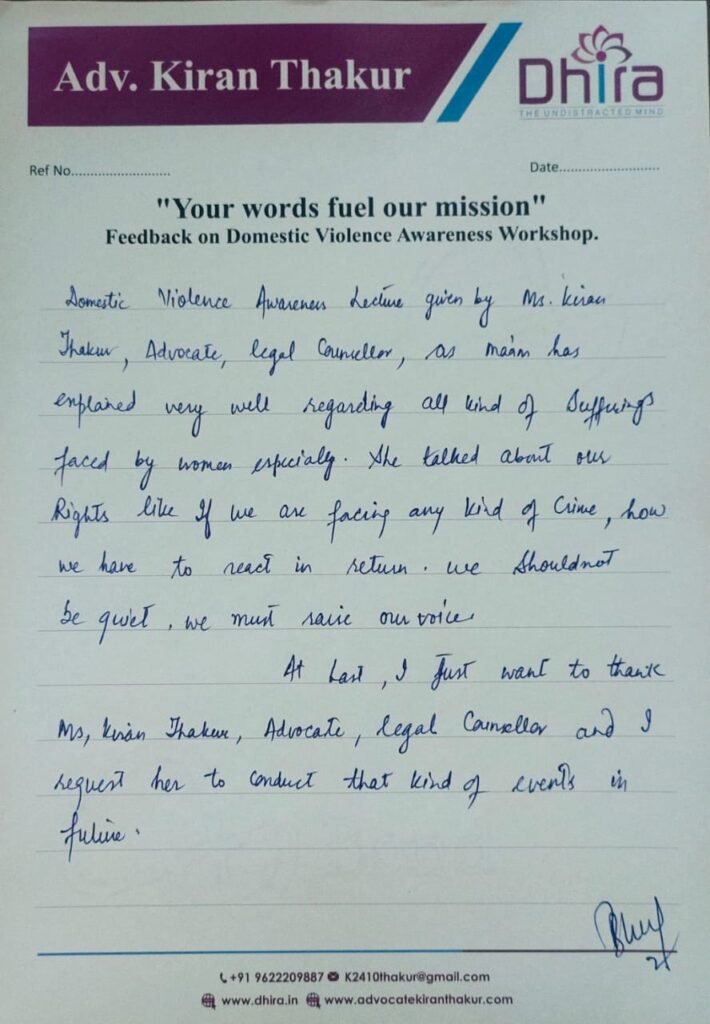 Adv. Kiran Thakur
Dhira
THE UNDISTRACTED MIND
Ref No..........................
Date..........................
"Your words fuel our mission"
Feedback on Domestic Violence Awareness Workshop.
Domestic Violence Awareness Lecture given by Ms. Kiran
Thakur, Advocate, legal Counsellor, as ma'am has
explained very well regarding all kind of Sufferings
faced by women especially. She talked about our
Rights like If we are facing any kind of Crime, how
we have to react in return. we Shouldnot
be quiet, we must raise our voice.
At Last, I Just want to thank
Ms, Kiran Thakur, Advocate, legal Counsellor and I
request her to Conduct that kind of events in
future.
+91 9622209887 K2410thakur@gmail.com
www.dhira.in www.advocatekiranthakur.com